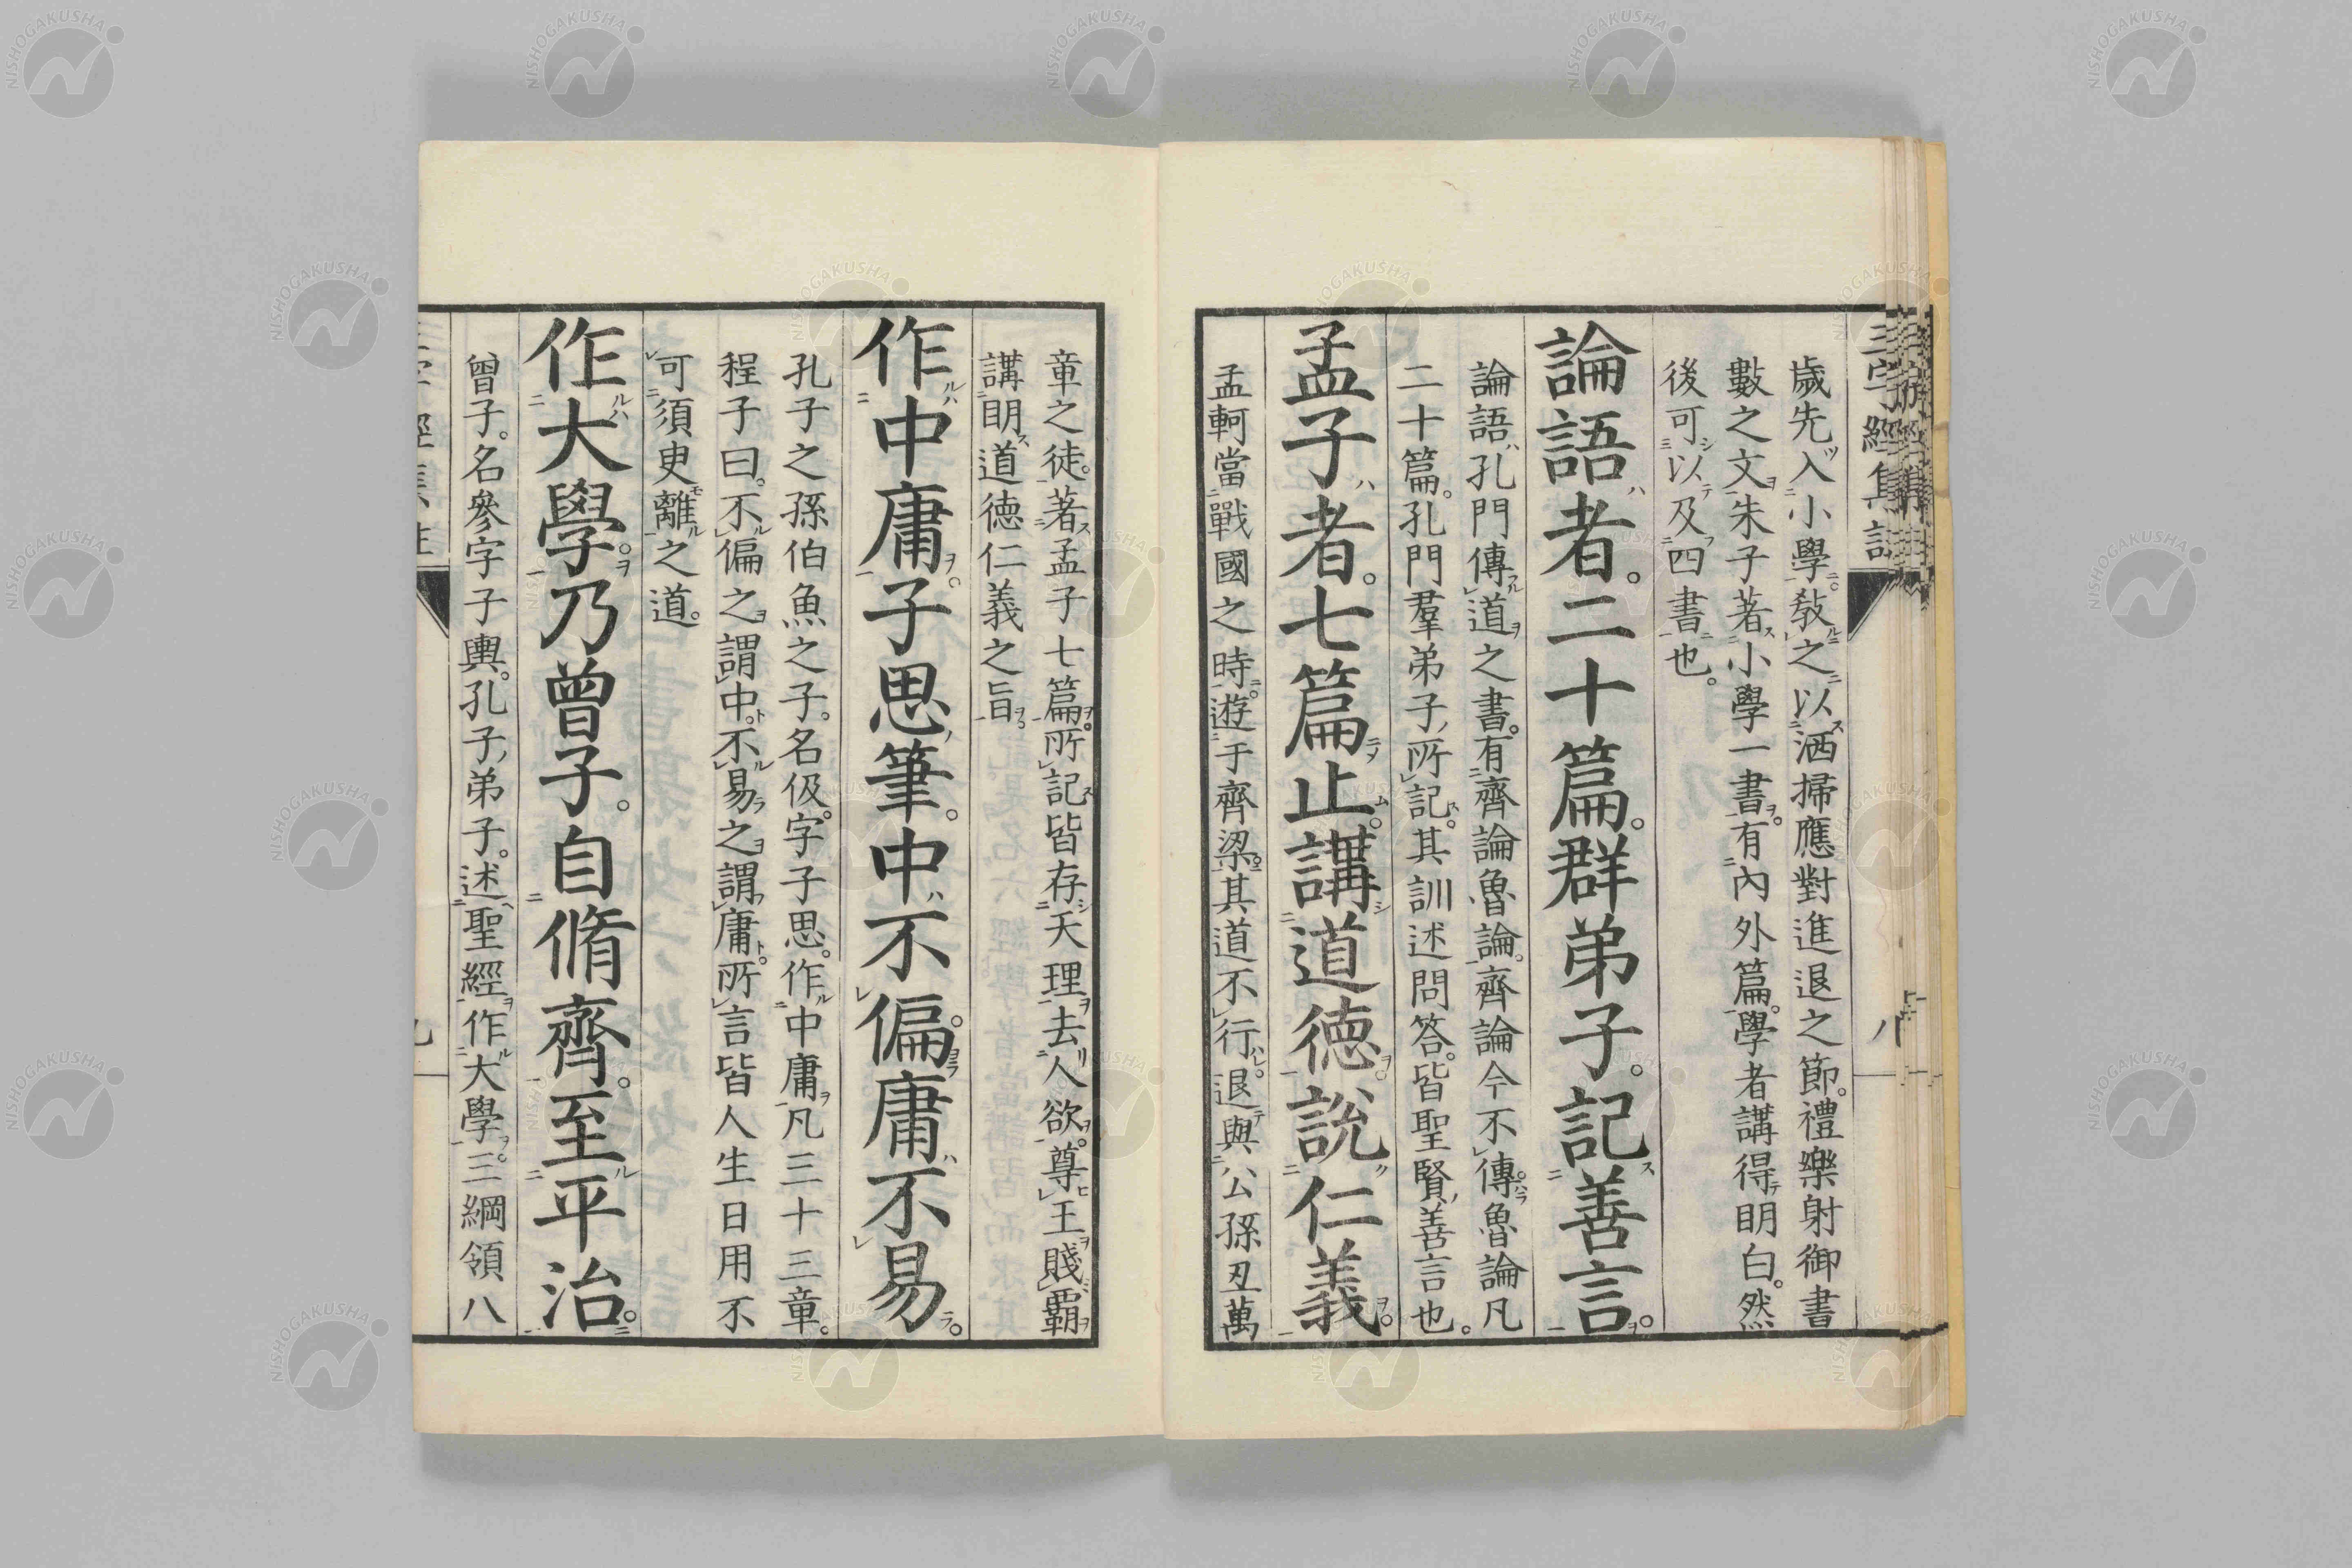 三字經集註
八
歲先入小學教之以洒掃應對進退之節。禮樂射御書
數之文朱子著小學一書。有內外篇。學者講得明白。然
後可以及四書也。
論語者。二十篇。群弟子。記善言。
論語孔門傳道之書。有齊論魯論。齊論今不傳。魯論凡
二十篇。孔門羣弟子所記。其訓述問答。皆聖賢善言也。
孟子者。七篇止。講道德。說仁義。
孟軻當戰國之時。遊于齊梁。其道不行。退與公孫丑萬
章之徒。著孟子七篇。所記皆存天理去人欲。尊王賤霸
講明道德仁義之旨。
作中庸。子思筆。中不偏。庸不易。
孔子之孫伯魚之子。名伋。字子思。作中庸凡三十三章。
程子曰。不偏之謂中。不易之謂庸。所言皆人生日用不
可須臾離之道。
作大學。乃曾子。自脩齊。至平治。
曾子。名參字子輿。孔子弟子。述聖經作大學。三綱領八
NISHOGAKUSHA